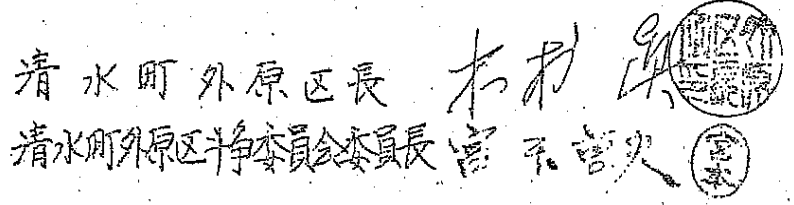 清水町外原区長 木村
清水町外原区斗争委員会委員長 宮本 宮本